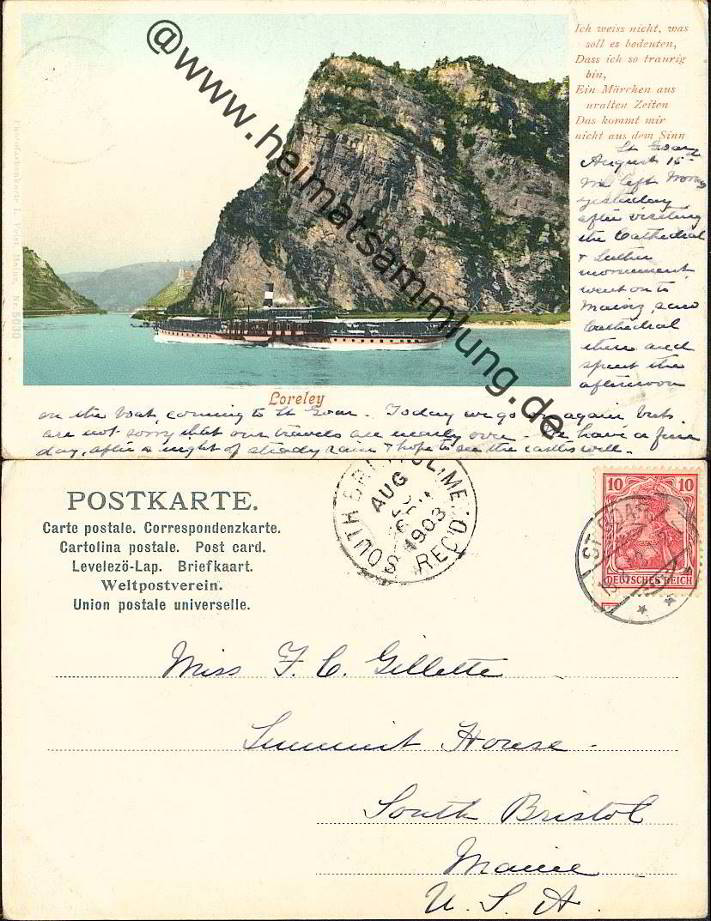 @www.heimatsammlung.de
Ich weiss nicht, was
soll es bedeuten,
Dass ich so traurig
bin,
Ein Märchen aus
uralten Zeiten
Das kommt mir
nicht aus dem Sinn
St Goar
August 15
We left Worms
yesterday
after visiting
the Cathedral
& Luther
monument
went on to
Mainz, saw
Cathedral
there and
spent the
afternoon
Loreley
on the boat, coming to St Goar. Today we go on again but
are not sorry that our travels are nearly over. We have a fine
day, after a night of steady rain & hope to see the castles well.
POSTKARTE.
Carte postale. Correspondenzkarte.
Cartolina postale. Post card.
Levelezö-Lap. Briefkaart.
Weltpostverein.
Union postale universelle.
SOUTH BRISTOL, ME.
AUG
1903
REC'D
10 10
DEUTSCHES REICH
ST. GOAR
Miss F. C. Gillette
Summit House
South Bristol
Maine
U. S. A.